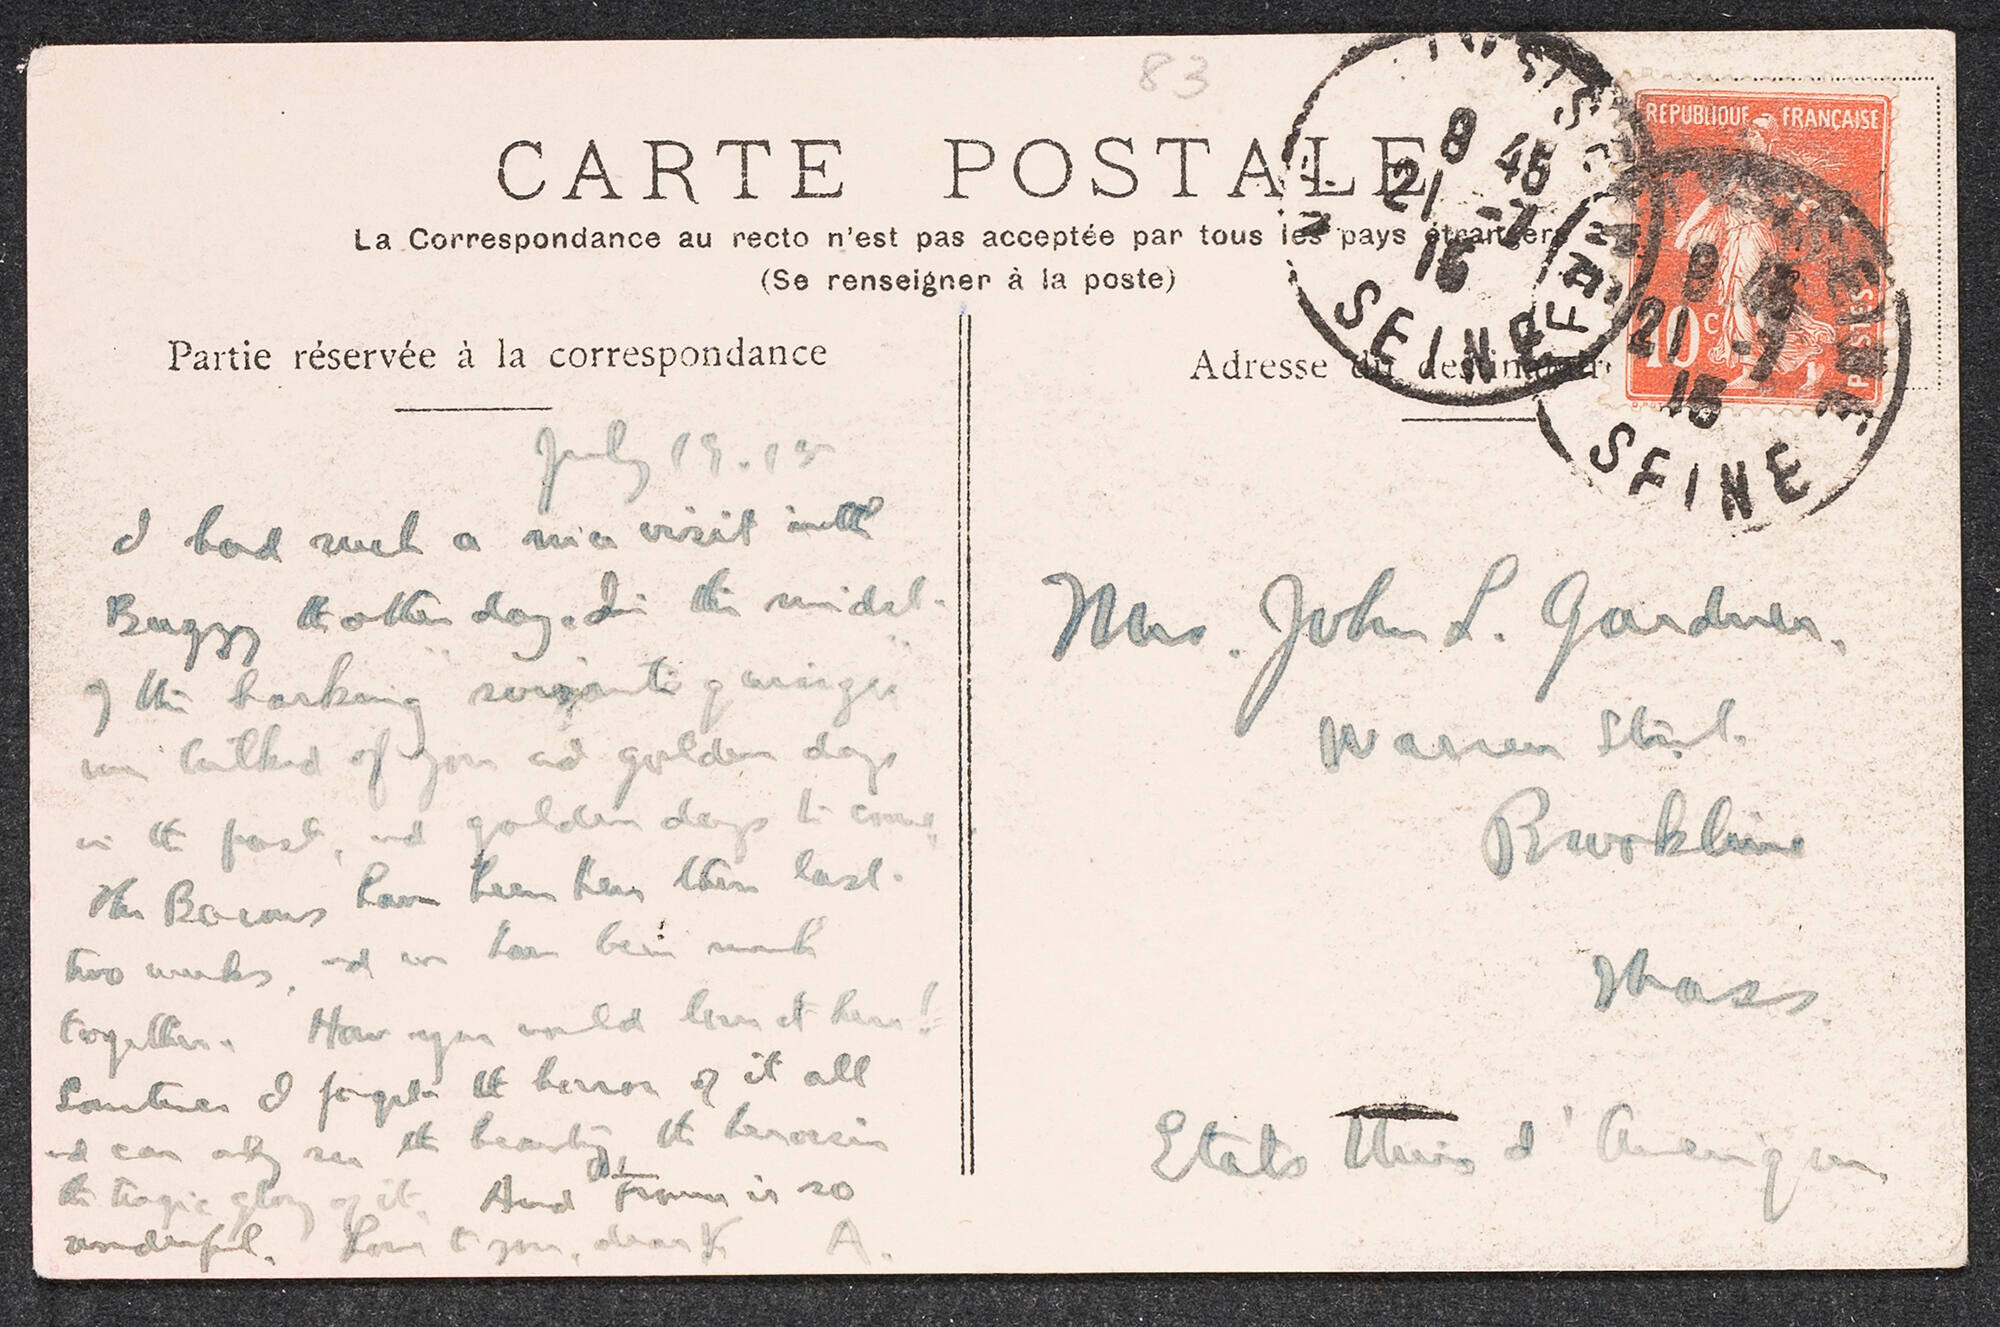 83
CARTE POSTALE
La Correspondance au recto n'est pas acceptée par tous les pays étrangers
(Se renseigner à la poste)
Partie réservée à la correspondance
Adresse du destinataire
REPUBLIQUE FRANÇAISE
10c
POSTES
8 45
21 -7
15
SEINE
8 45
21 -7
15
SEINE
July 19.15
I had such a nice visit with
Buggy the other day. In the midst
of the barking "soixante quinze"
we talked of you and golden days
in the past, and golden days to come.
The Bacons have been here the last
two weeks, and we have been much
together. How you would love it here!
Sometimes I forget the horror of it all
and can only see the beauty, the heroism
the tragic glory of it. And France is so
wonderful. Love to you, dear Y A.
Mrs. John L. Gardner.
Warren Street.
Brookline
Mass.
Etats Unis d'Amerique.